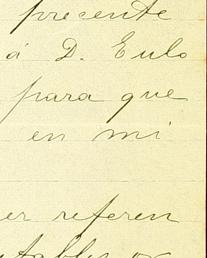 precente
á D. Eulo
para que
en mi
er referen